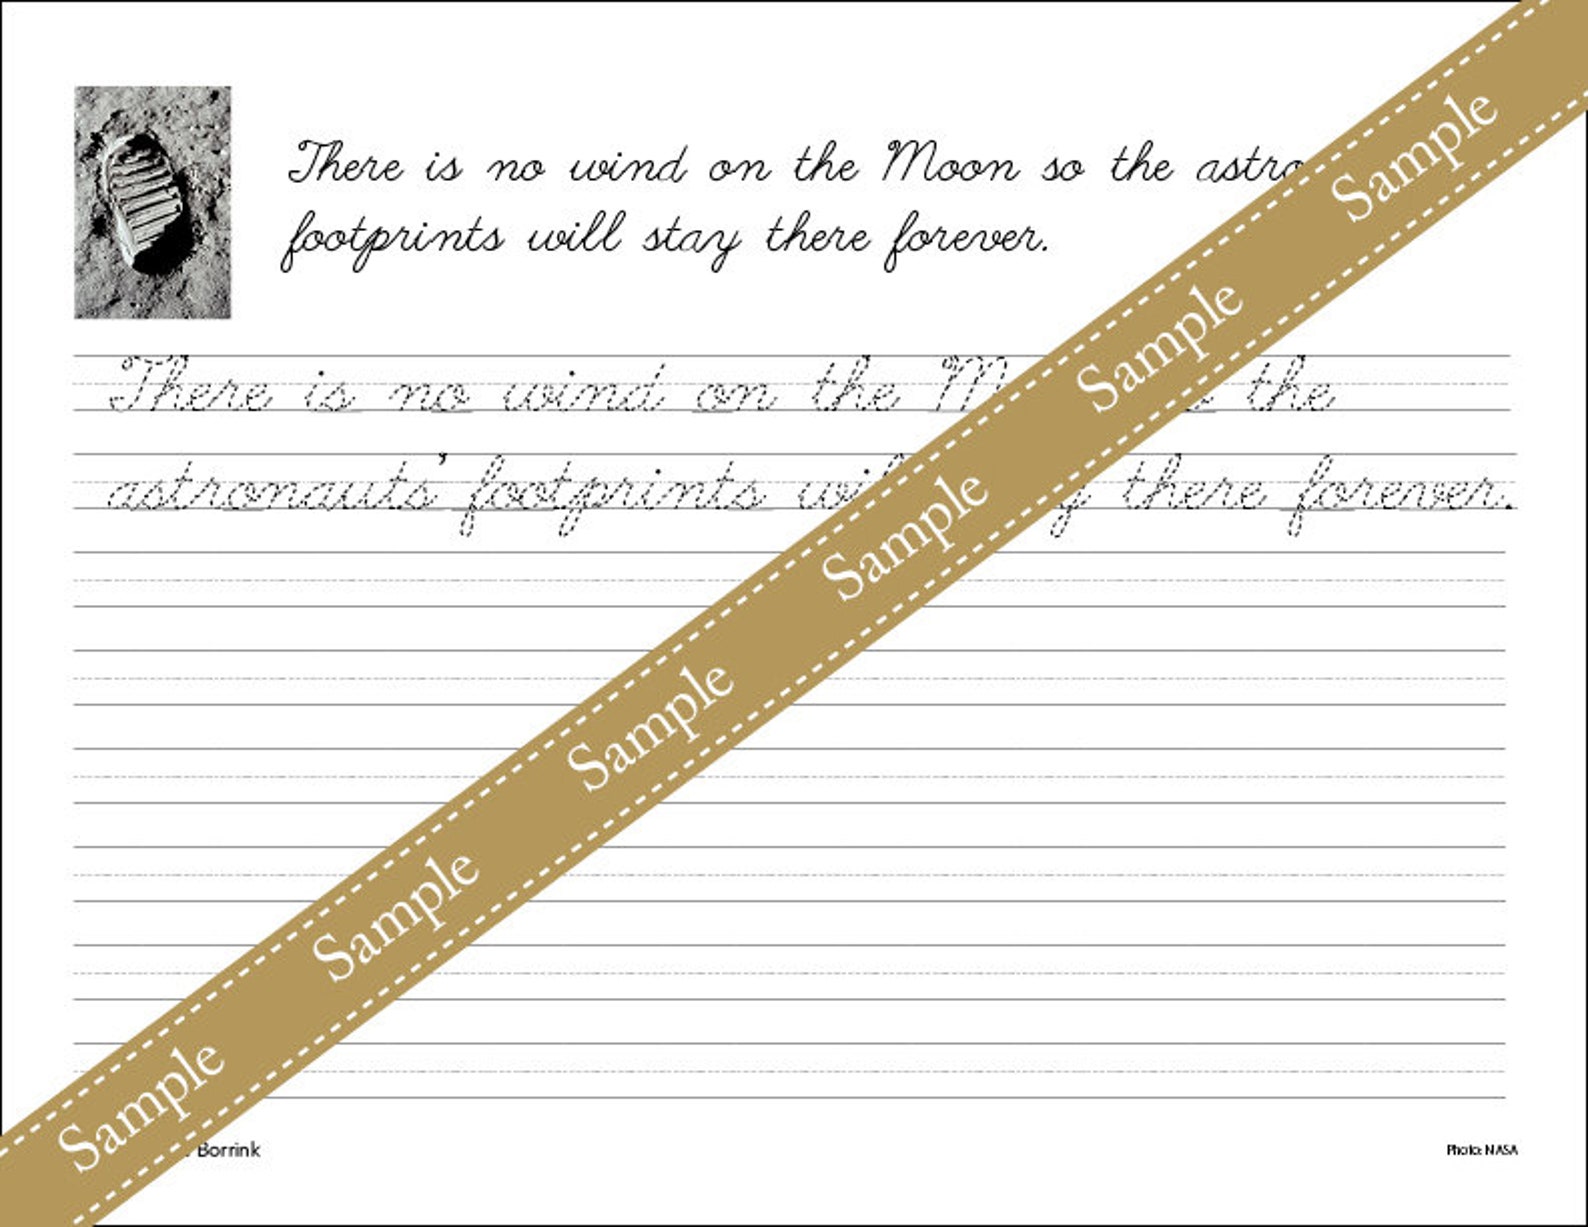 There is no wind on the Moon so the astro
footprints will stay there forever.
There is no wind on the M the
astronauts' footprints wil y there forever.
Sample
Sample
Sample
Sample
Sample
Sample
Borrink
Photo: NASA